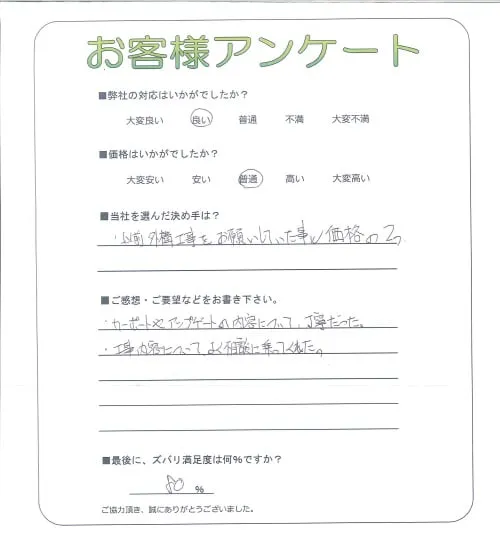 お客様アンケート
■弊社の対応はいかがでしたか？
大変良い 良い 普通 不満 大変不満
■価格はいかがでしたか？
大変安い 安い 普通 高い 大変高い
■当社を選んだ決め手は？
・以前外構工事をお願いしていた事と価格の2つ
■ご感想・ご要望などをお書き下さい。
・カーポートやアップゲートの内容について、丁寧だった。
・工事内容について、よく相談に乗ってくれた。
■最後に、ズバリ満足度は何％ですか？
80 ％
ご協力頂き、誠にありがとうございました。